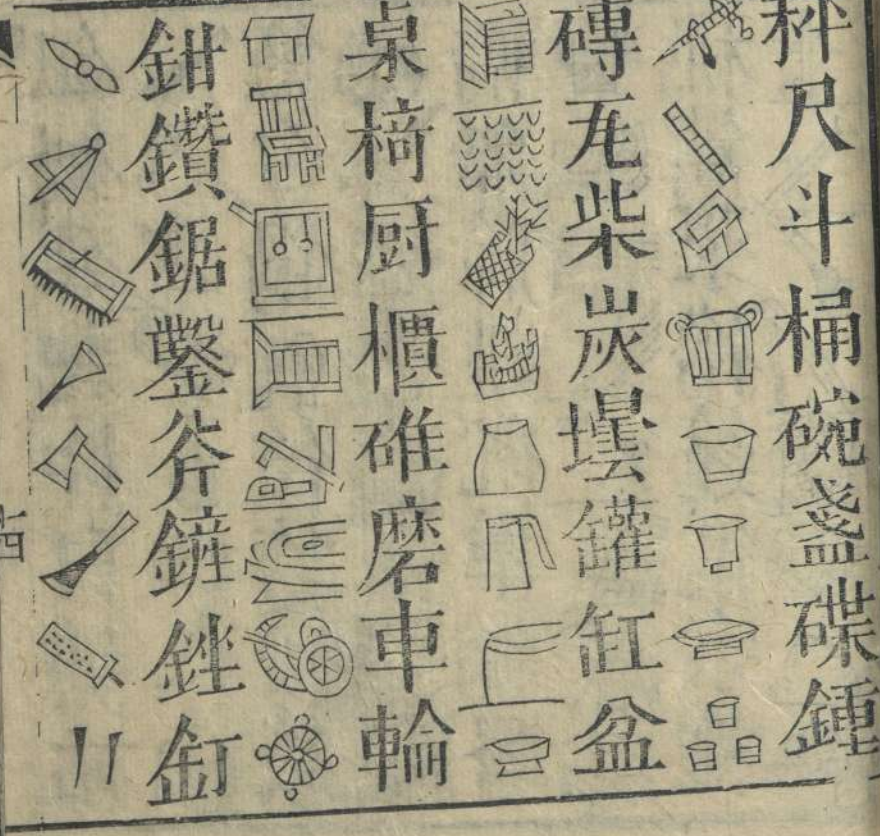 秤尺斗桶碗盞碟鍾
磚瓦柴炭壜罐缸盆
桌椅厨櫃碓磨車輪
鉗鑽鋸鑿斧鏟銼釘